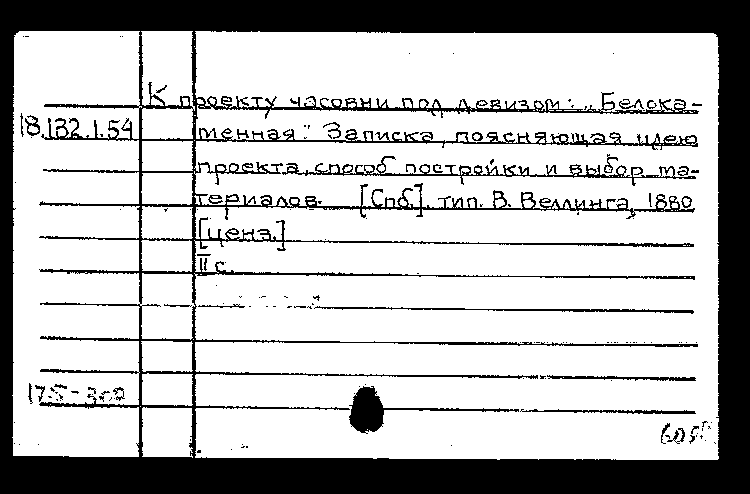 К проекту часовни под девизом: „Белока-
18.132.1.54 менная". Записка, поясняющая идею
проекта, способ постройки и выбор ма-
териалов. [Спб.], тип. В. Веллинга, 1880
[ценз.]
II с.